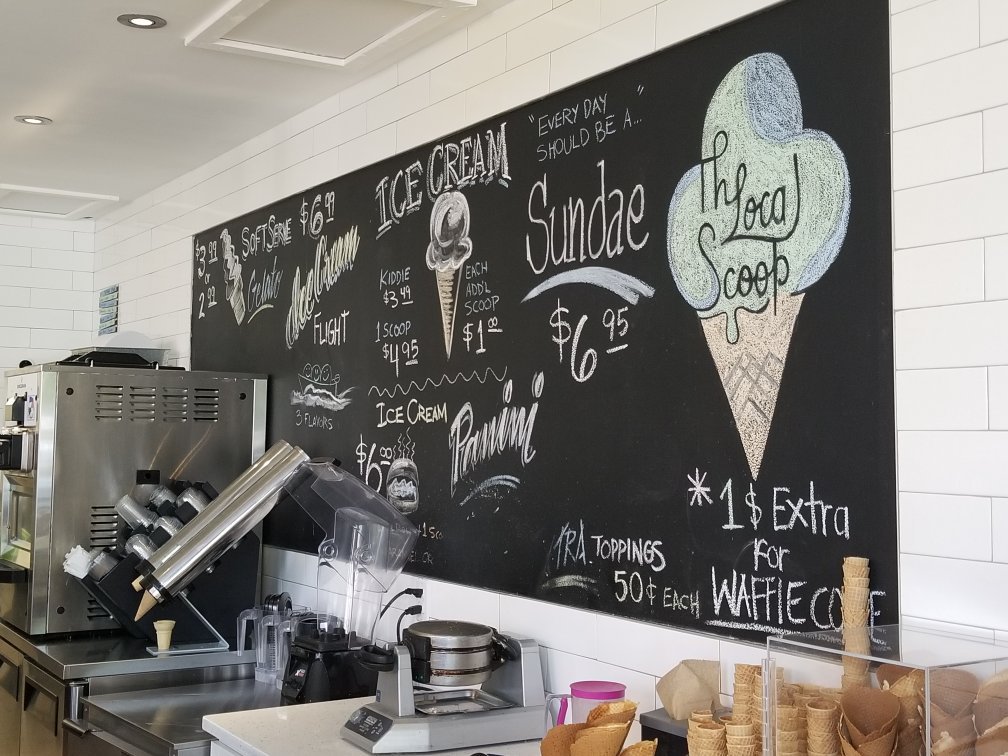 $3.99
2.99
SOFT SERVE
Gelato
$6.99
Ice Cream
FLIGHT
3 FLAVORS
ICE CREAM
KIDDIE
$3.49
1 SCOOP
$4.95
EACH
ADD'L
SCOOP
$1.00
ICE CREAM
Panini
$6.00
"EVERY DAY
SHOULD BE A..."
Sundae
$6.95
TRA TOPPINGS
50¢ EACH
The Local
Scoop
*1$ Extra
For
WAFFLE CONE